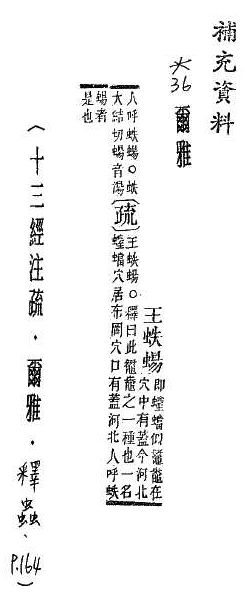 補充資料
*36 爾雅
王蛈蝪
即螲蟷似鼅鼄在
穴中有蓋今河北
人呼蛈蝪○蛈
大結切蝪音湯
〔疏〕
王蛈蝪○釋曰此鼅鼄之一種也一名
螲蟷穴居布网穴口有蓋河北人呼蛈
蝪者
是也
(十三經注疏·爾雅·釋蟲、P.164)